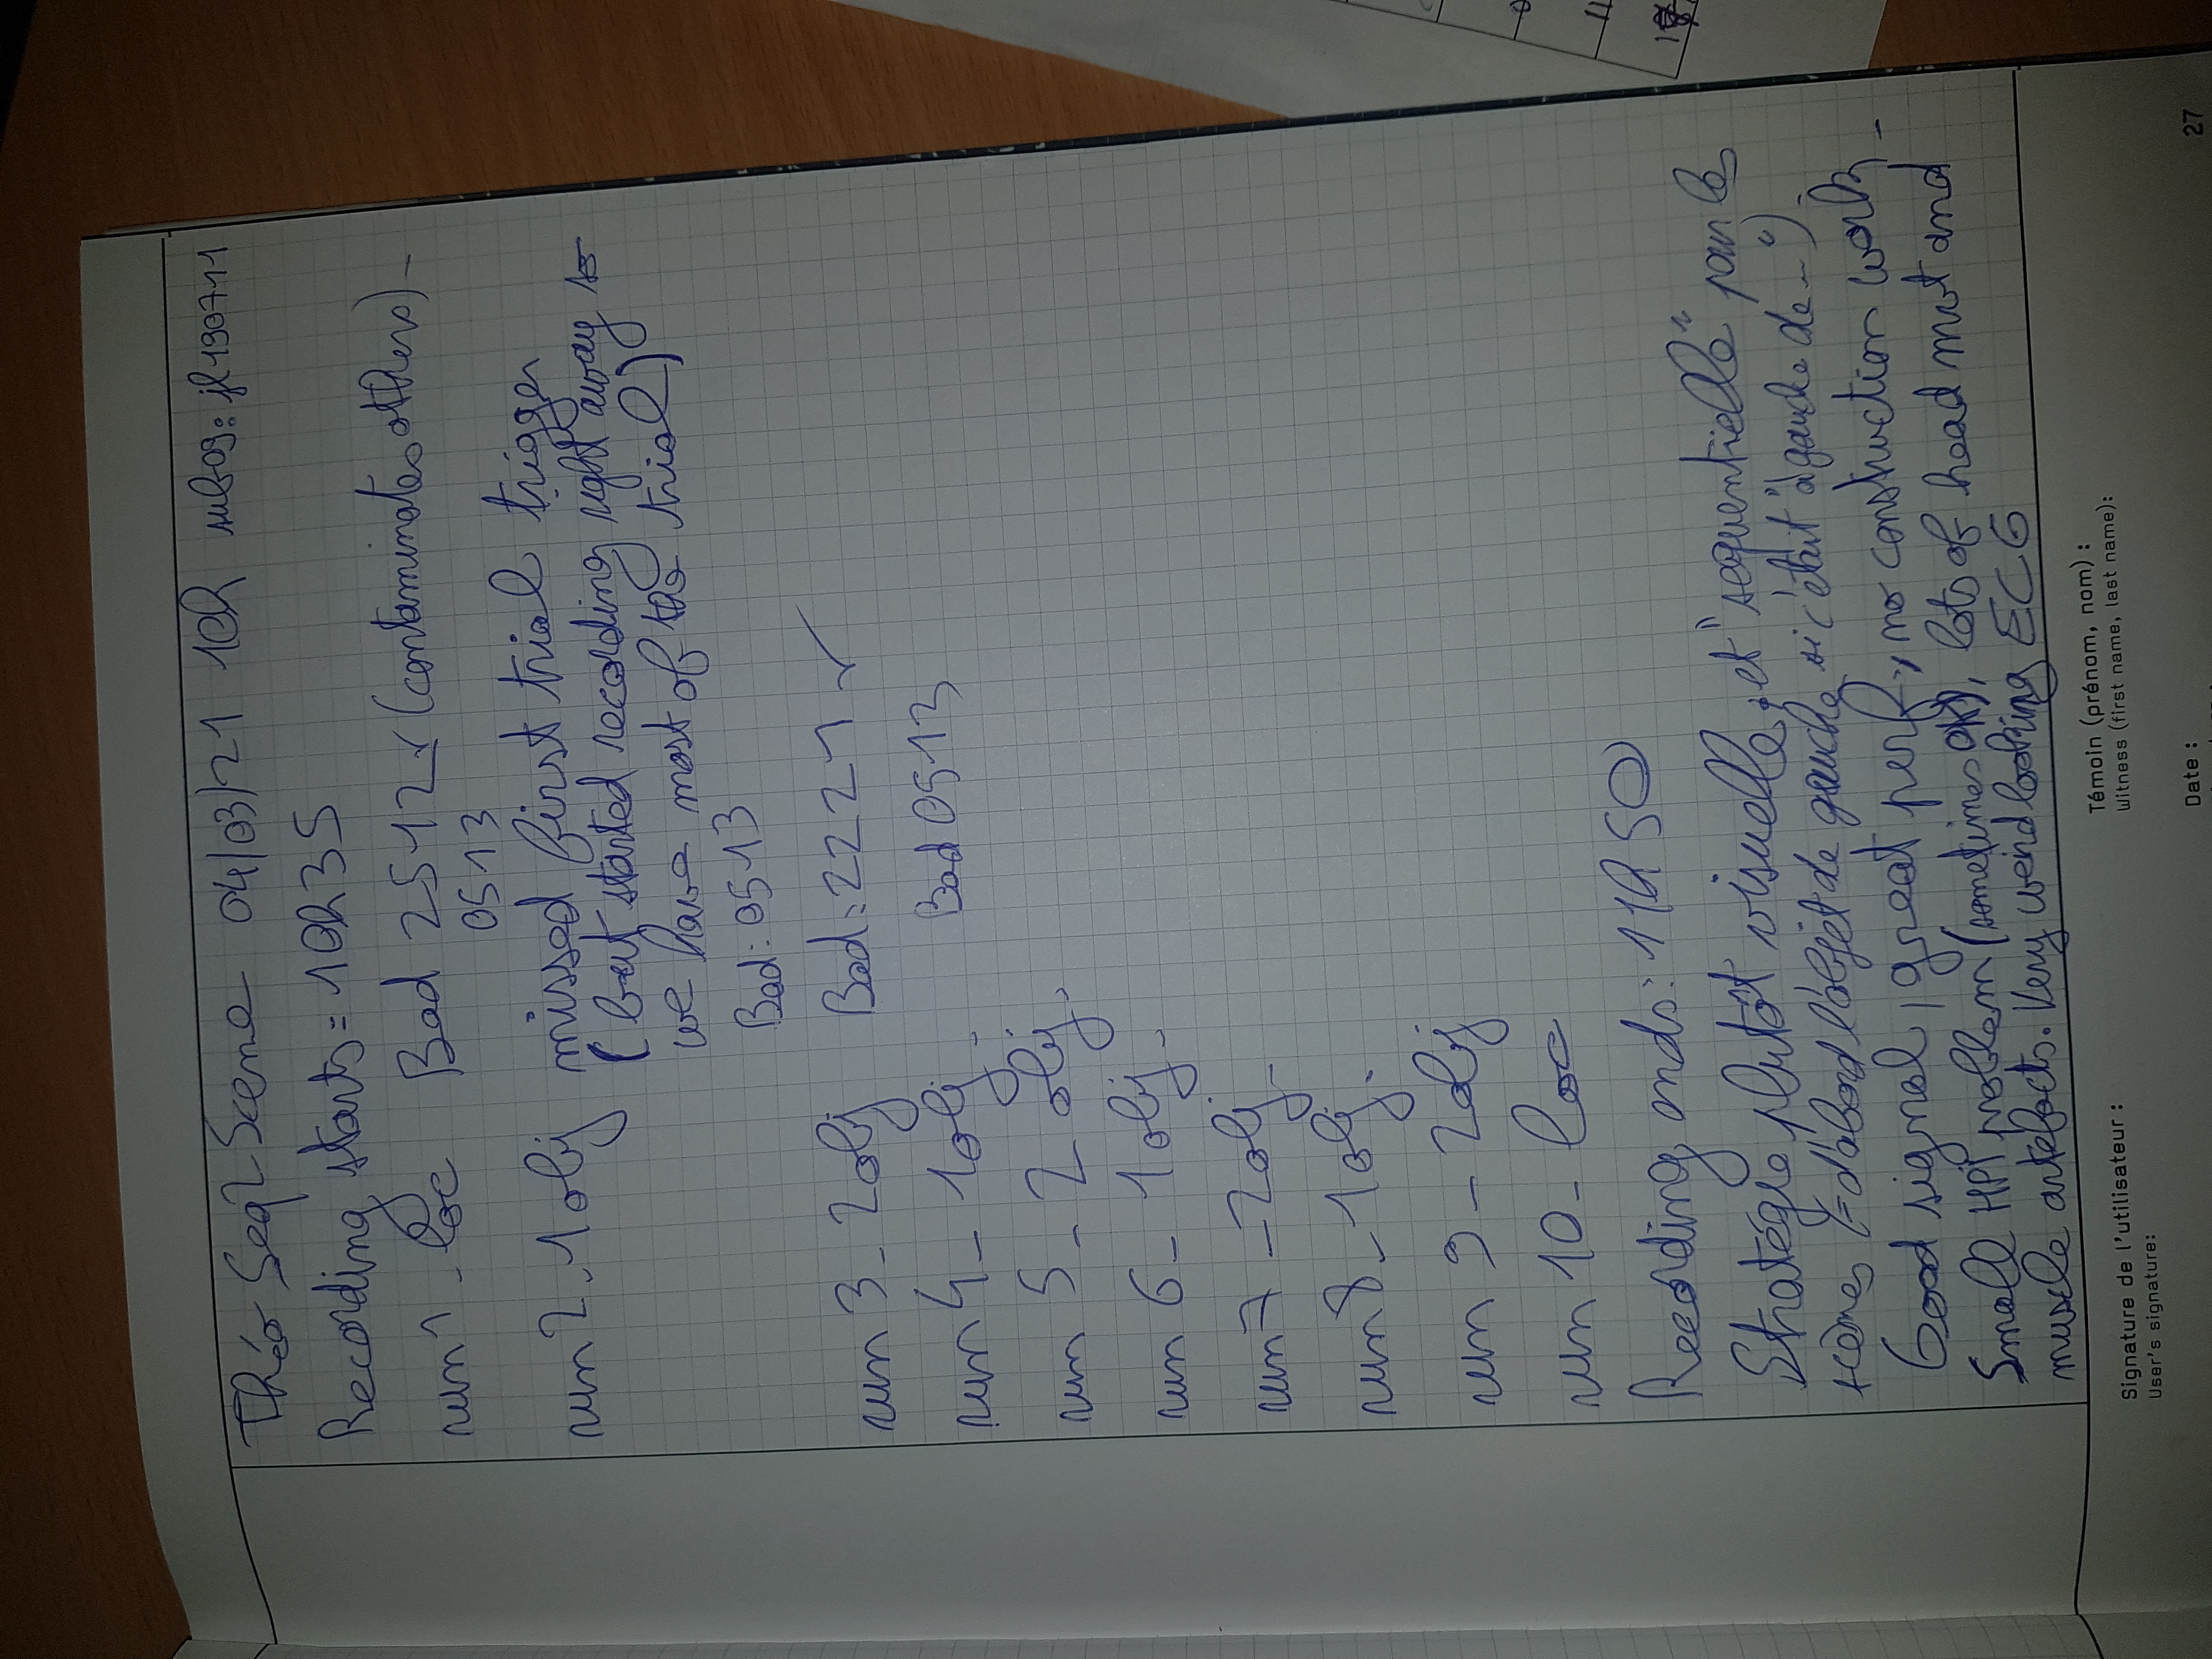 Théo Seq2Scene 04/03/21 10h sub09: jl190711
Recording starts = 10h35
run1_loc Bad 2512 ✓ (contaminates others)_
0513
run2_1obj missed first trial trigger
(but started recording right away so
we have most of the trial)
Bad: 0513
run 3_2obj Bad: 2221 ✓
run4_1obj_ Bad 0513
run 5_2 obj.
run 6_1obj_
run7_2obj_
run8_1obj.
run 9_2obj
run 10_loc
Recording ends: 11h50
Stratégie plutôt visuelle, et "sequentielle" pour les
scènes (= d'abord l'objet de gauche si c'était "à gauche de...").
Good signal, great perf., no construction work_
Small HPI problem (sometimes OK), lots of head mvt and
muscle artefacts. Very weird looking ECG
Signature de l'utilisateur :
User's signature:
Témoin (prénom, nom) :
Witness (first name, last name):
Date :
27